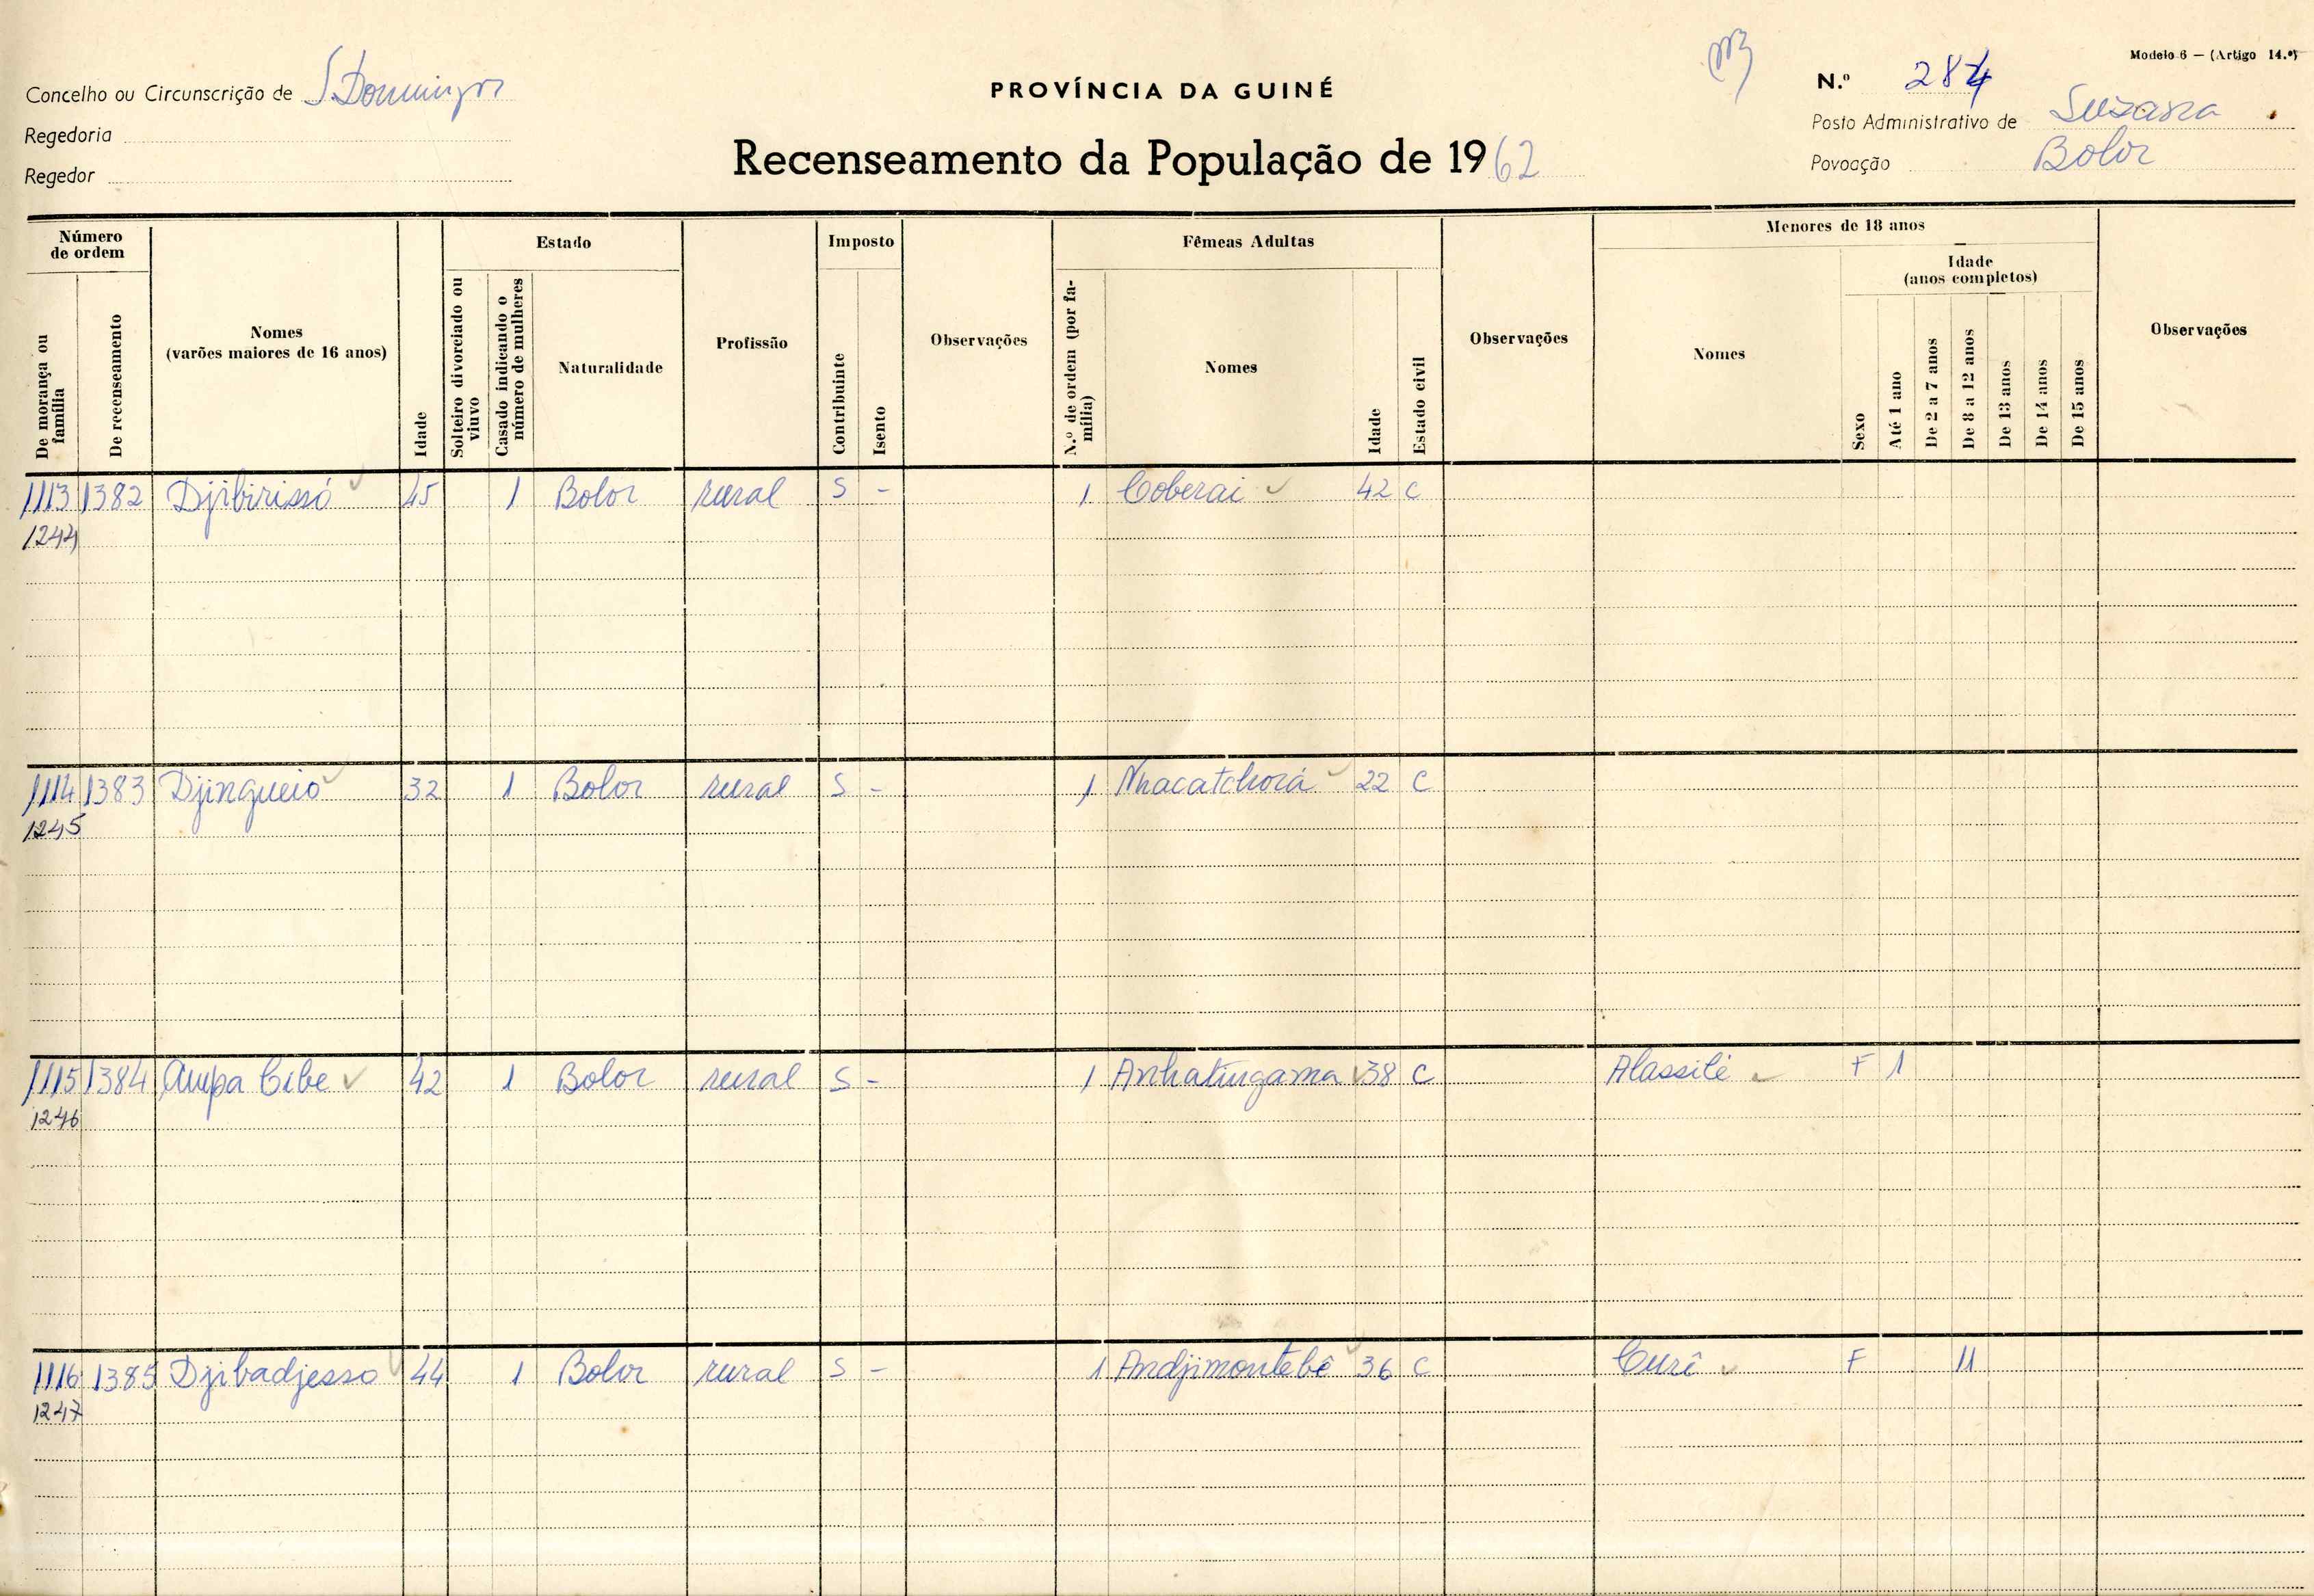 Modelo 6 — (Artigo 14.º)
Concelho ou Circunscrição de S. Domingos
PROVÍNCIA DA GUINÉ
N.º 284
Regedoria
Posto Administrativo de Suzana
Regedor
Recenseamento da População de 1962
Povoação Bolor
Número de ordem
Estado
Imposto
Fêmeas Adultas
Menores de 18 anos
Idade (anos completos)
De morança ou família
De recenseamento
Nomes (varões maiores de 16 anos)
Idade
Solteiro divorciado ou viuvo
Casado indicando o número de mulheres
Naturalidade
Profissão
Contribuinte
Isento
Observações
N.º de ordem (por família)
Nomes
Idade
Estado civil
Observações
Nomes
Sexo
Até 1 ano
De 2 a 7 anos
De 8 a 12 anos
De 13 anos
De 14 anos
De 15 anos
Observações
1113 1382 Djibirissó 45 1 Bolor rural S - 1 Coberai 42 C
1244
1114 1383 Djingueio 32 1 Bolor rural S - 1 Nhacatchorá 22 C
1245
1115 1384 Ampa Cibe 42 1 Bolor rural S - 1 Anhatingama 38 C Alassilé F 1
1246
1116 1385 Djibadjesso 44 1 Bolor rural S - 1 Andjimontebê 36 C Curê F 11
1247